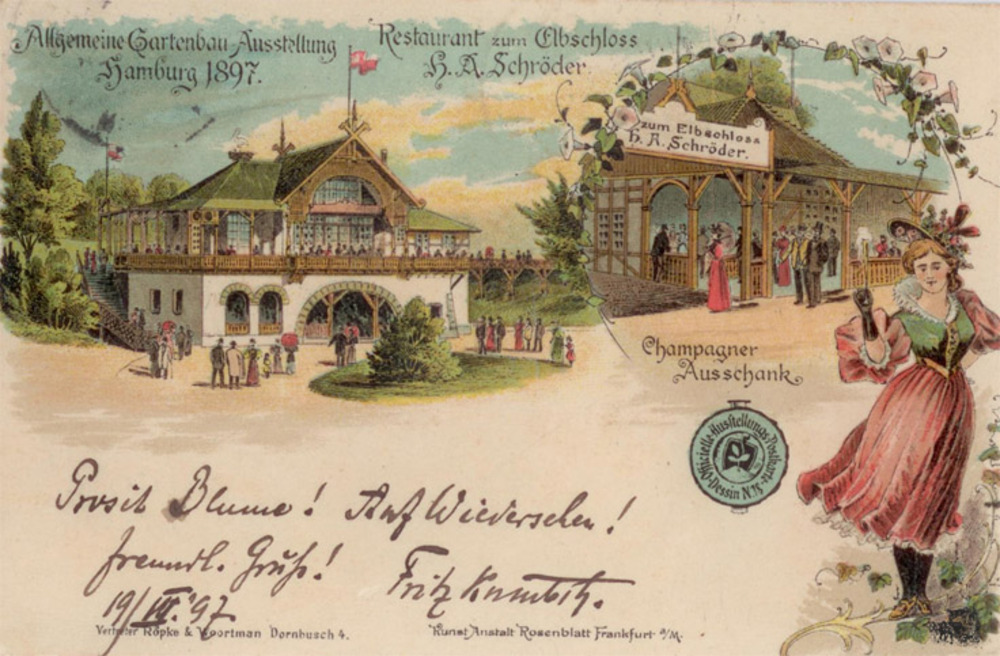 Allgemeine Gartenbau-Ausstellung
Hamburg 1897.
Restaurant zum Elbschloss
H. A. Schröder.
zum Elbschloss
H. A. Schröder.
Champagner
Ausschank
Officielle Ausstellungs-Postkarte
Dessin N.
Prosit Blume! Auf Wiedersehen!
freundl. Gruß!
Fritz
19/ '97
Vertreter Röpke & Woortman Dornbusch 4.
Kunst Anstalt Rosenblatt Frankfurt a/M.